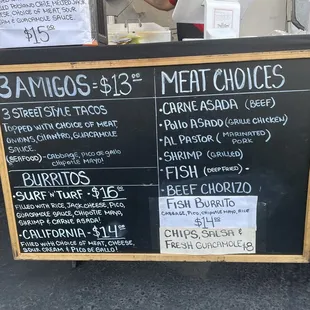 CHOICE OF MEAT, SOUR
CREAM OR GUACAMOLE SAUCE
$15
3 AMIGOS = $13
3 STREET STYLE TACOS
TOPPED WITH CHOICE OF MEAT,
ONIONS, CILANTRO, GUACAMOLE
SAUCE.
(SEAFOOD) - CABBAGE, PICO DE GALLO
CHIPOTLE MAYO!
BURRITOS
• SURF N' TURF - $16
FILLED WITH RICE, JACK CHEESE, PICO,
GUACAMOLE SAUCE, CHIPOTLE MAYO,
SHRIMP & CARNE ASADA!
• CALIFORNIA - $14
FILLED WITH CHOICE OF MEAT, CHEESE,
SOUR CREAM & PICO DE GALLO!
MEAT CHOICES
• CARNE ASADA (BEEF)
• POLLO ASADO (GRILLED CHICKEN)
• AL PASTOR (MARINATED PORK)
• SHRIMP (GRILLED)
• FISH (DEEP FRIED)
• BEEF CHORIZO
FISH BURRITO
CABBAGE, PICO, CHIPOTLE MAYO, RICE
$14
CHIPS, SALSA &
FRESH GUACAMOLE $8